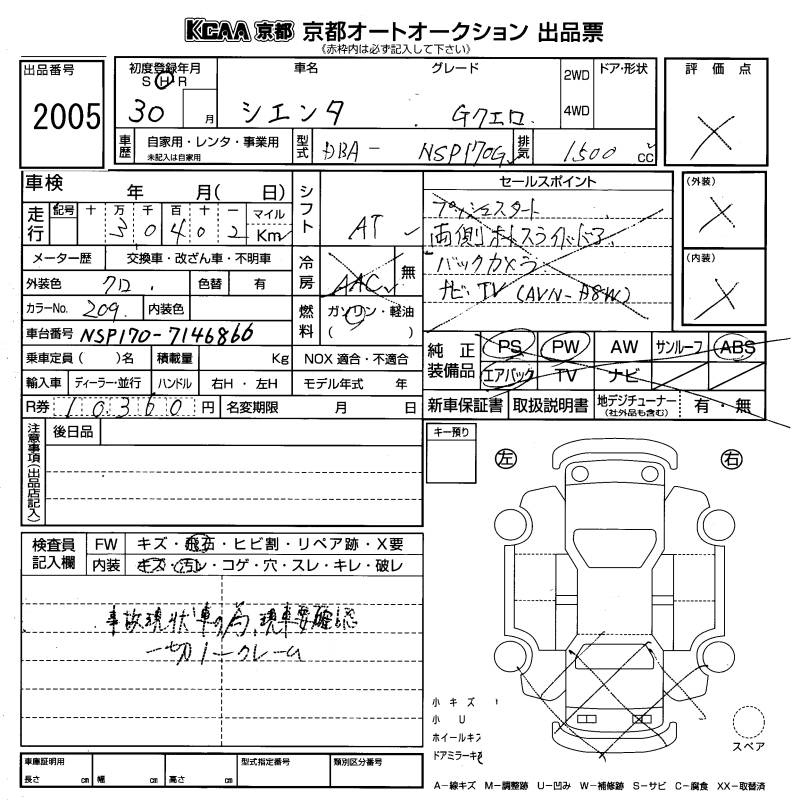 KCAA 京都 京都オートオークション 出品票
(赤枠内は必ず記入して下さい)
出品番号 2005
初度登録年月 S H R 30 月
車名 シエンタ
グレード Gクエロ.
2WD 4WD
ドア・形状
評価点 X
車歴 自家用・レンタ・事業用
未記入は自家用
型式 DBA- NSP170G
排気 1500 cc
車検 年 月( 日)
シフト AT
セールスポイント
プッシュスタート
両側ポスライドドア
バックカメラ
ナビ・TV (AVN-A8W)
(外装) X
(内装) X
走行 記号 十 万 千 百 十 一 マイル Km
3 0 4 0 2
メーター歴 交換車・改ざん車・不明車
冷房 AAC 無
外装色 クロ. 色替 有
カラーNo. 209. 内装色
燃料 ガソリン・軽油 ( )
車台番号 NSP170-7146866
乗車定員 ( )名 積載量 Kg NOX 適合・不適合
輸入車 ディーラー・並行 ハンドル 右H・左H モデル年式 年
R券 10360 円 名変期限 月 日
純正装備品 PS PW AW サンルーフ ABS
エアバック TV ナビ
新車保証書 取扱説明書 地デジチューナー (社外品も含む) 有・無
注意事項(出品店記入) 後日品
キー預り
左 右
検査員記入欄 FW キズ・飛石・ヒビ割・リペア跡・X要
内装 キズ・汚レ・コゲ・穴・スレ・キレ・破レ
事故現状車の為、現車要確認
一切ノークレーム
小キズ
小U
ホイールキズ
ドアミラーキズ
スペア
車庫証明用 長さ cm 幅 cm 高さ cm
型式指定番号 類別区分番号
A-線キズ M-調整跡 U-凹み W-補修跡 S-サビ C-腐食 XX-取替済